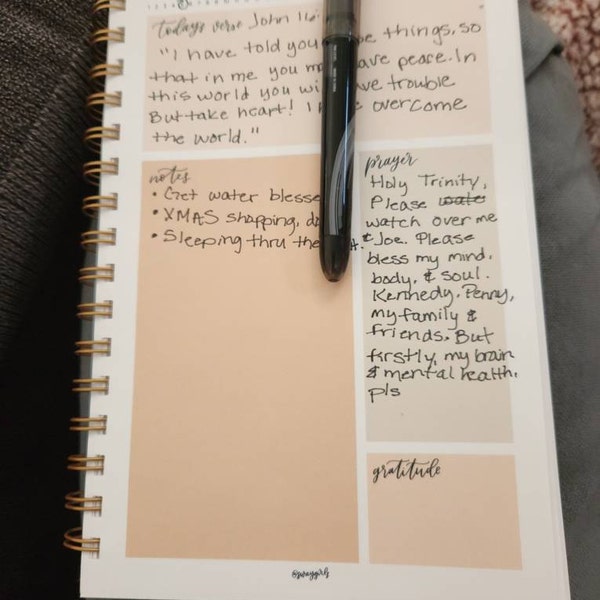 todays verse John 16:
"I have told you these things, so
that in me you may have peace. In
this world you will have trouble
But take heart! I have overcome
the world."
notes
• Get water blesse
• XMAS shopping, do
• Sleeping thru the
prayer
Holy Trinity,
Please wate
watch over me
& Joe. Please
bless my mind,
body, & soul.
Kennedy, Penny,
my family &
friends. But
firstly, my brain
& mental health.
pls
gratitude
@swaygirls